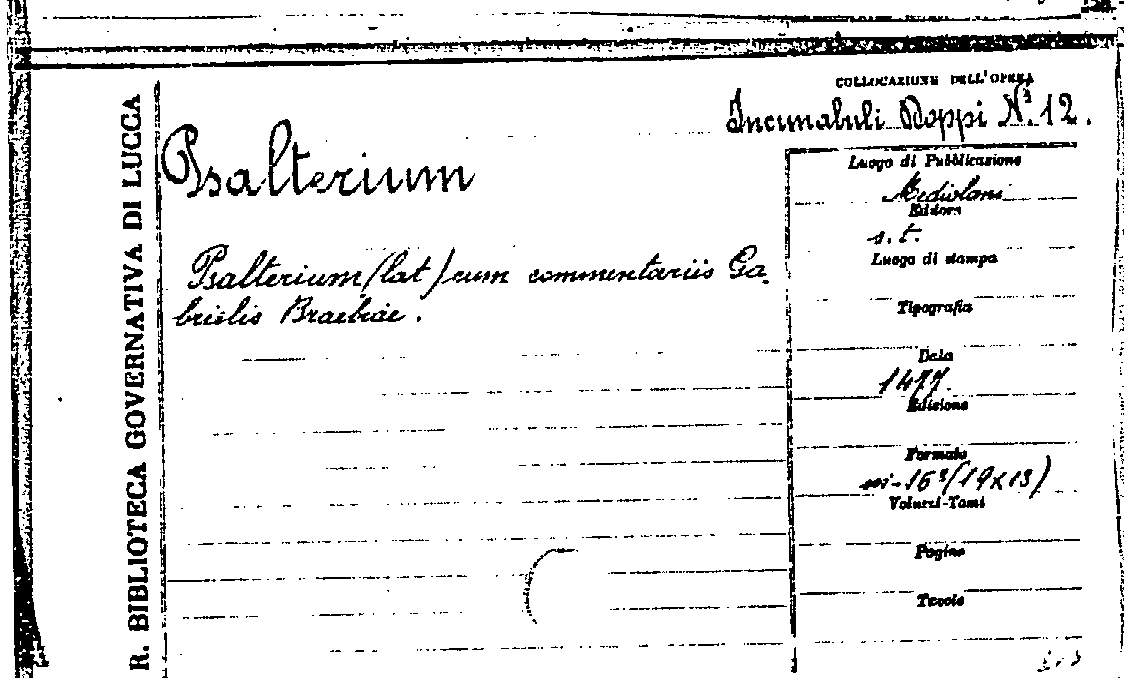 R. BIBLIOTECA GOVERNATIVA DI LUCCA
COLLOCAZIONE DELL'OPERA
Incunabuli Doppi N.º 12.
Psalterium
Psalterium (lat) cum commentariis Ga
brielis Braebiae.
Luogo di Pubblicazione
Mediolani
Editore
s. t.
Luogo di stampa
Tipografia
Data
1477.
Edizione
Formato
in-16º (19x13)
Volumi-Tomi
Pagine
Tavole